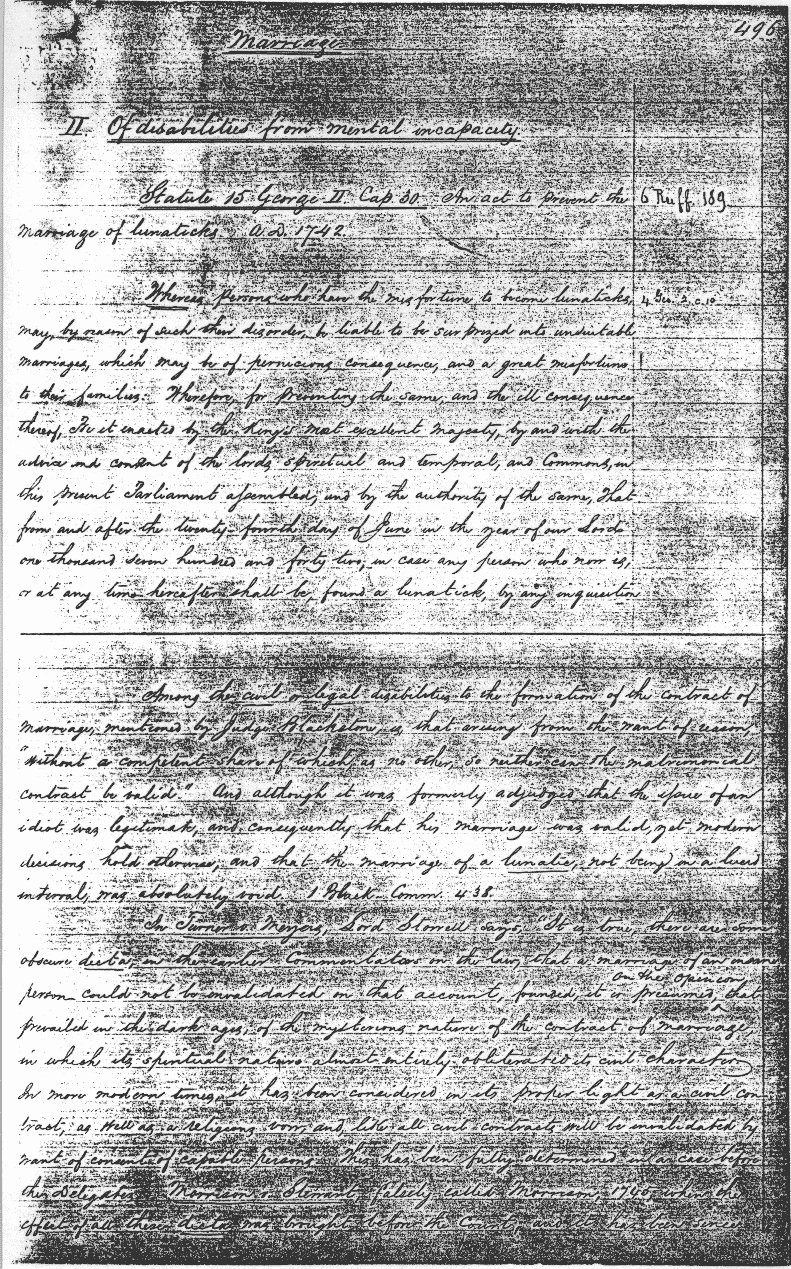 496
Marriage
II Of disabilities from mental incapacity.
Statute 15 George II Cap. 30. An act to prevent the
6 Ruff. 189
marriage of lunaticks A.D. 1742.
Whereas persons who have the misfortune to become lunaticks,
4 Geo. 2. c. 10
may, by reason of such their disorder, be liable to be surprized into unsuitable
marriages, which may be of pernicious consequence, and a great misfortune
to their families: Therefore, for preventing the same, and the ill consequence
thereof, Be it enacted by the King's most excellent majesty, by and with the
advice and consent of the lords spiritual and temporal, and Commons, in
this present Parliament assembled, and by the authority of the same, That
from and after the twenty-fourth day of June in the year of our Lord
one thousand seven hundred and forty two, in case any person who now is,
or at any time hereafter shall be, found a lunatick, by any inquisition
Among the civil or legal disabilities to the formation of the contract of
marriage, mentioned by Judge Blackston, is, that arising from the want of reason,
"without a competent share of which, as no other, so neither can the matrimonial
contract be valid." And although it was formerly adjudged that the issue of an
idiot was legitimate, and, consequently that his marriage was valid, yet modern
decisions hold otherwise, and that the marriage of a lunatic, not being in a lucid
interval, was absolutely void. 1 Black. Comm. 438.
In Turner v. Meyers, Lord Stowell says, "It is true, there are some
obscure dicta, in the earlier Commentators on the law, that a marriage of an insane
person could not be invalidated on that account, founded, it is presumed, on the opinion that
prevailed in the dark ages, of the mysterious nature of the contract of marriage,
in which its spiritual nature almost entirely obliterated its civil character
In more modern times, it has been considered in its proper light as a civil con
tract, as well as a religious vow, and, like all civil contracts will be invalidated by
want of consent of capable persons. This has been fully determined in a case before
the Delegates Morrison v. Stewart, falsely called Morrison, 1745, when the
effect of all these dicta was brought before the Court, and it has been since